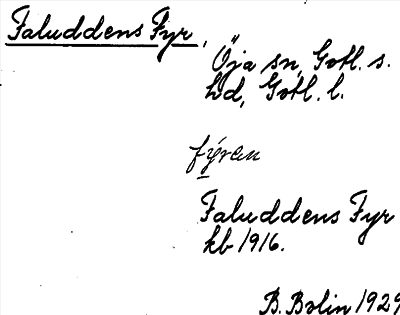 Faluddens Fyr,
Öja sn, Gotl. s.
hd, Gotl. l.
fýran
Faluddens Fyr
kb 1916.
B. Bolin 1929